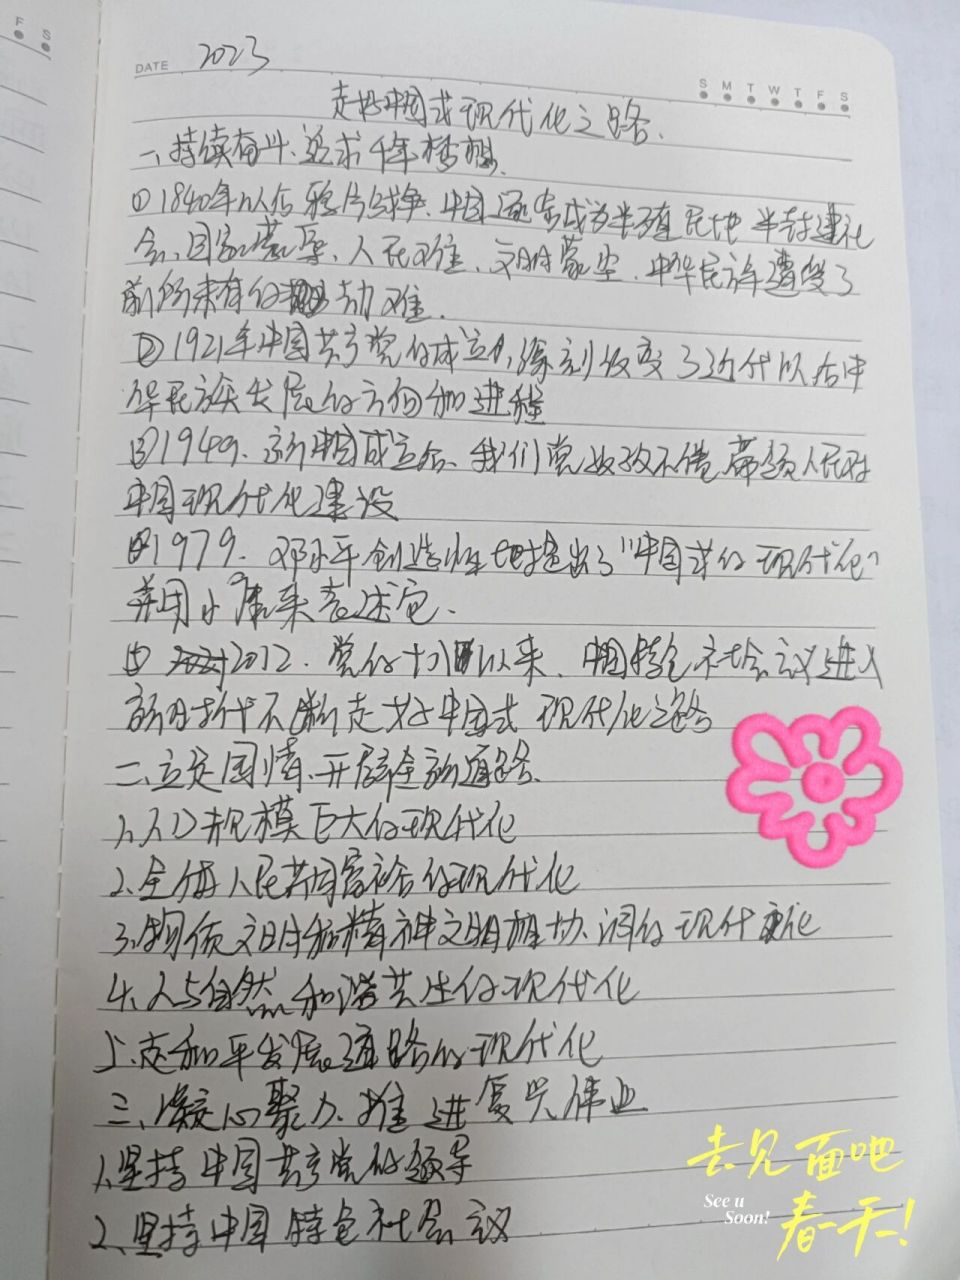 F S
DATE 2023
S M T W T F S
走好中国式现代化之路.
一、持续奋斗、追求千年梦想.
①1840年以后鸦片战争、中国逐步成为半殖民地半封建社
会、国家蒙辱、人民难、文明蒙尘、中华民族遭受了
前所未有的劫难.
②1921年中国共产党的成立,深刻改变了近代以后中
华民族发展的方向和进程
③1949、新中国成立后、我们党孜孜不倦带领人民对
中国现代化建设
④1979、邓小平创造性地提出了"中国式的现代化"
并用小康来表述它.
⑤2012、党的十八以来、中国特色社会议进入
新时代不断走好中国式现代化之路
二、立足国情、开辟全新道路.
1、人口规模巨大的现代化
2、全体人民共同富裕的现代化
3、物质文明和精神文明相协调的现代化
4、人与自然和谐共生的现代化
5、走和平发展道路的现代化
三、凝心聚力、推进复兴伟业
1、坚持中国共产党的领导
2、坚持中国特色社会议
去见面吧
See u
Soon!
春天!